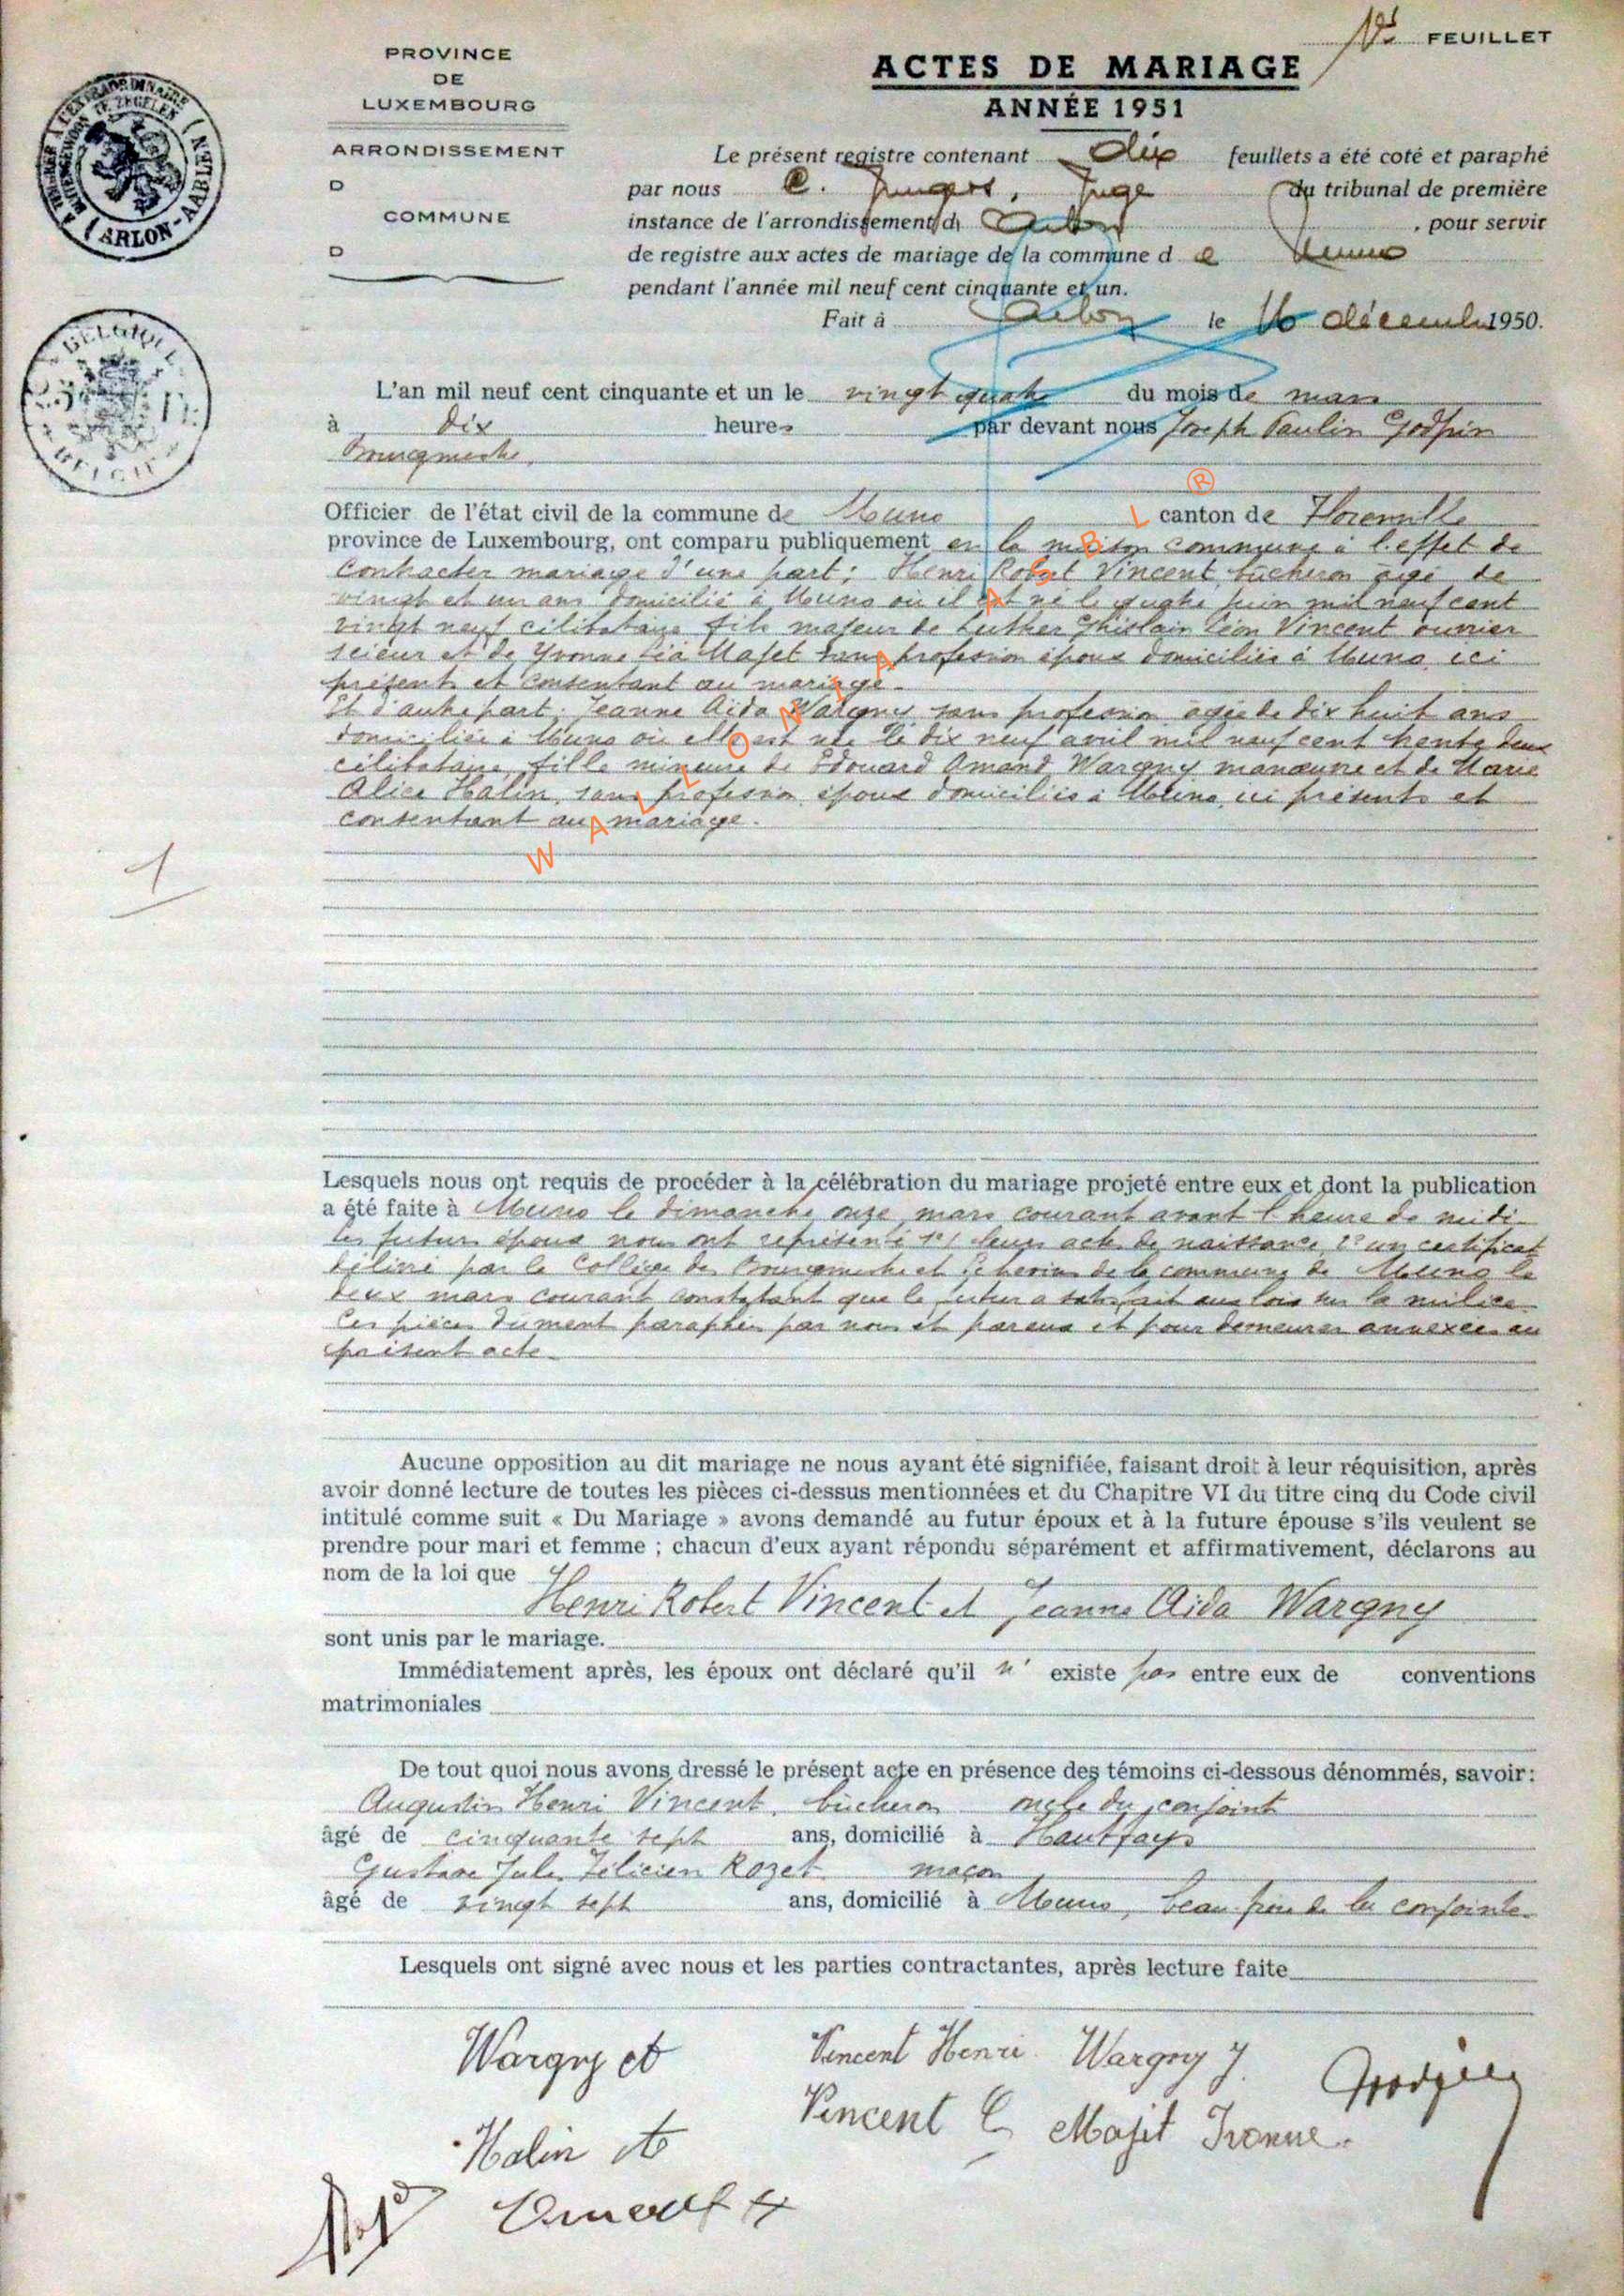 1er FEUILLET
PROVINCE
DE
LUXEMBOURG
ARRONDISSEMENT
D
COMMUNE
D
ACTES DE MARIAGE
ANNÉE 1951
Le présent registre contenant dix feuillets a été coté et paraphé
par nous Juge du tribunal de première
instance de l'arrondissement d Arlon , pour servir
de registre aux actes de mariage de la commune d e Muno
pendant l'année mil neuf cent cinquante et un.
Fait à Arlon le 16 décembre 1950.
A L'EXTRAORDINAIRE
ARLON-AARLEN
BELGIQUE
BELGIË
L'an mil neuf cent cinquante et un le vingt quatre du mois de mars
à dix heures par devant nous Joseph Paulin Godfrin
Bourgmestre,
Officier de l'état civil de la commune de Muno canton de Florenville
province de Luxembourg, ont comparu publiquement en la maison commune à l'effet de
contracter mariage d'une part; Henri Robert Vincent bûcheron âgé de
vingt et un ans domicilié à Muno où il est né le quatre juin mil neuf cent
vingt neuf célibataire fils majeur de Luther Ghislain Léon Vincent ouvrier
scieur et de Yvonne Léa Majet sans profession époux domiciliés à Muno ici
présents et consentant au mariage.
Et d'autre part; Jeanne Aida Wargny sans profession âgée de dix huit ans
domiciliée à Muno où elle est née le dix neuf avril mil neuf cent trente deux
célibataire, fille mineure de Edouard Amand Wargny manœuvre et de Marie
Alice Halin, sans profession époux domiciliés à Muno, ici présents et
consentant au mariage.
WALLONIA ASBL ®
1
Lesquels nous ont requis de procéder à la célébration du mariage projeté entre eux et dont la publication
a été faite à Muno le dimanche onze mars courant avant l'heure de midi
les futurs époux nous ont représenté 1°/ leurs acte de naissance, 2° un certificat
délivré par le Collège des Bourgmestre et Echevins de la commune de Muno le
deux mars courant constatant que le futur a satisfait aux lois sur la milice.
Ces pièces dûment paraphées par nous et par eux et pour demeurer annexées au
présent acte.
Aucune opposition au dit mariage ne nous ayant été signifiée, faisant droit à leur réquisition, après
avoir donné lecture de toutes les pièces ci-dessus mentionnées et du Chapitre VI du titre cinq du Code civil
intitulé comme suit « Du Mariage » avons demandé au futur époux et à la future épouse s'ils veulent se
prendre pour mari et femme ; chacun d'eux ayant répondu séparément et affirmativement, déclarons au
nom de la loi que
Henri Robert Vincent et Jeanne Aida Wargny
sont unis par le mariage.
Immédiatement après, les époux ont déclaré qu'il n' existe pas entre eux de conventions
matrimoniales
De tout quoi nous avons dressé le présent acte en présence des témoins ci-dessous dénommés, savoir:
Augustin Henri Vincent, bûcheron oncle du conjoint
âgé de cinquante sept ans, domicilié à Hautfays
Gustave Jules Félicien Rozet maçon
âgé de vingt sept ans, domicilié à Muno, beau-frère de la conjointe.
Lesquels ont signé avec nous et les parties contractantes, après lecture faite
Wargny et Vincent Henri Wargny J. Godfrin
Vincent L Majet Ivonne.
Halin A